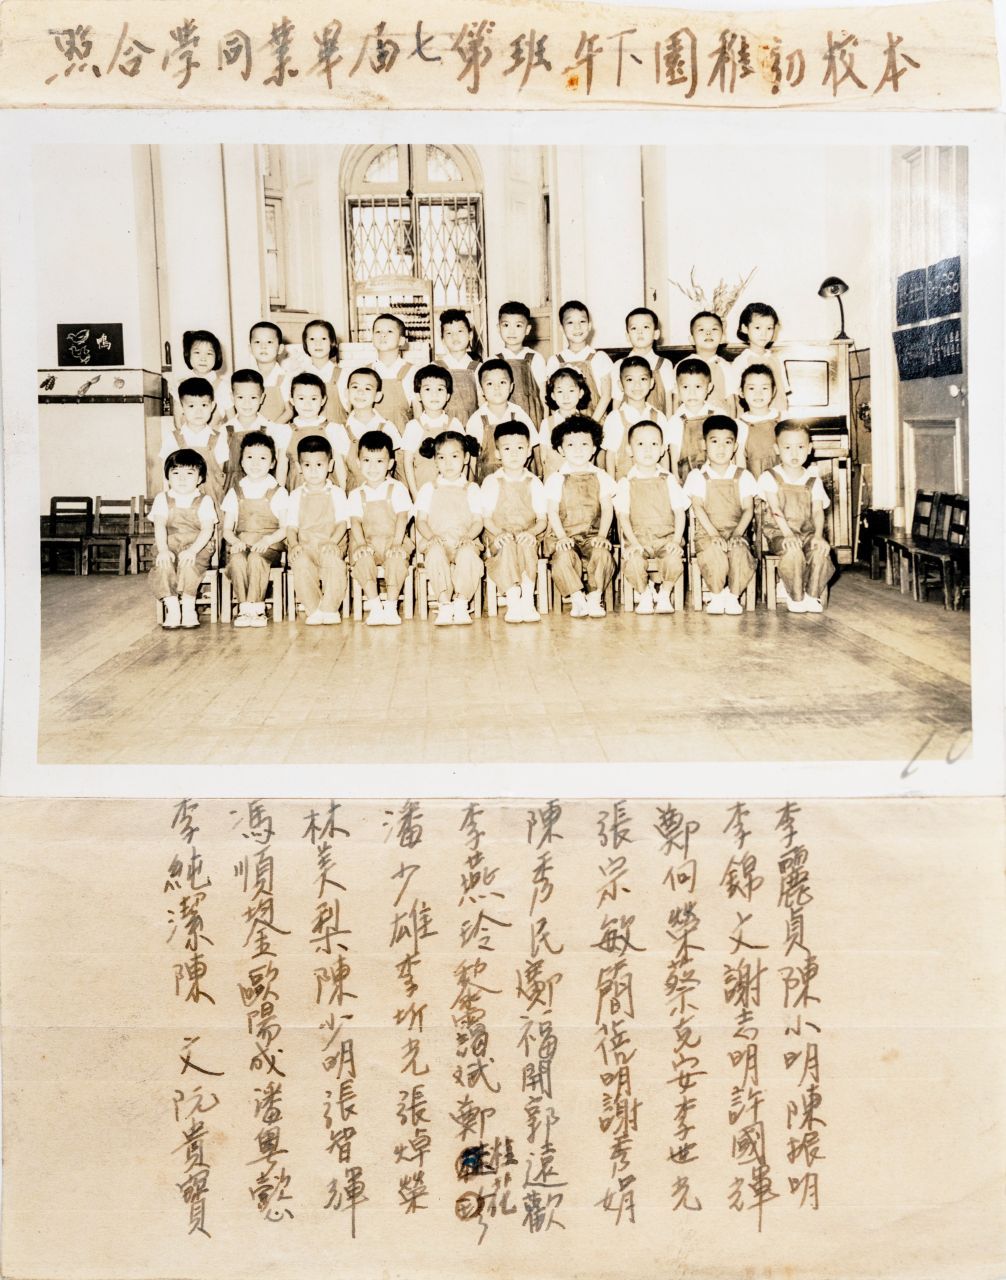 本校初稚園下午班第七届畢業同學合照
鴨
10
李麗貞陳小明陳振明
李錦文謝志明許國輝
鄭何榮蔡克安李世光
張宗敏簡蓓明謝秀娟
陳秀民鄺福開郭遠歡
李燕玲 斌鄭桂
潘少雄李圻光張焯榮
林美梨陳少明張智輝
馮順鋆歐陽成潘粵懿
李純潔陳 文阮貴寶